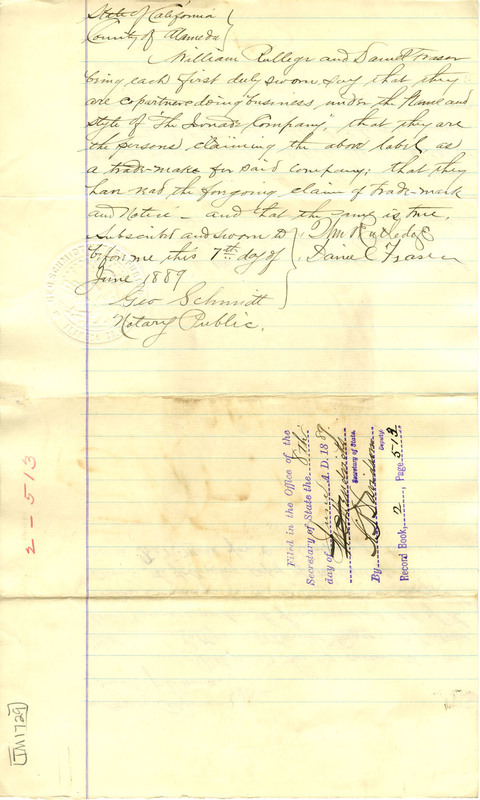 State of California
County of Alameda
William Rutledge and Daniel Fraser
being each first duly sworn say that they
are copartners doing business, under the Name and
style of "The Company", that they are
the persons claiming the above label, as
a trade-mark for said company; that they
have read the foregoing claim of trade-mark
and Notice - and that the same is true.
Subscribed and sworn to
before me this 7th day of
June 1889
Wm Rutledge
Daniel Fraser
Geo Schmidt
Notary Public.
Filed in the Office of the
Secretary of State the 8th
day of June A. D. 1889
Secretary of State.
By Deputy.
Record Book, 2, Page 513
2-513
TM1729